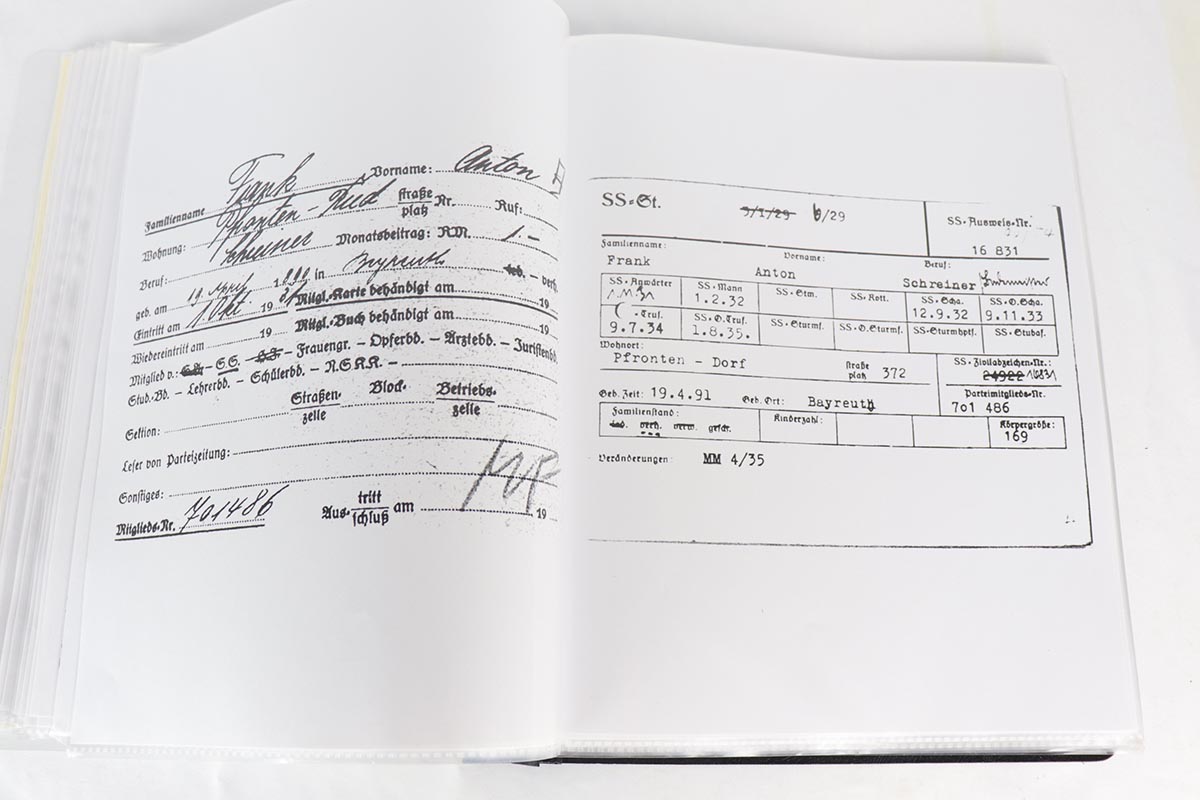 Familienname Frank Vorname: Anton
Wohnung: Pfronten - Ried straße platz Nr. Ruf:
Beruf: Schreiner Monatsbeitrag: RM. 1.-
geb. am 19. April 1890 in Bayreuth led. - verh.
Eintritt am 1. Okt 1931 Mitgl.-Karte behändigt am 19
Wiedereintritt am 19 Mitgl.-Buch behändigt am 19
Mitglied v.: S.A. - S.S. - Frauengr. - Opferbd. - Ärztebd. - Juristenbd.
Stud.-Bd. - Lehrerbd. - Schülerbd. - N.S.K.K. -
Sektion: Straßen- zelle Block- Betriebs- zelle
Leser von Parteizeitung:
Sonstiges:
Mitglieds-Nr. 701486 Aus- tritt schluß am 19
SS-St. 9/1/29 6/29 SS-Ausweis-Nr.
16 831
Familienname: Vorname: Beruf:
Frank Anton Schreiner
SS-Anwärter SS-Mann SS-Stm. SS-Rott. SS-Scha. SS-O.Scha.
1.2.32 12.9.32 9.11.33
-Truf. SS-O.Truf. SS-Sturmf. SS-O.Sturmf. SS-Sturmhptf. SS-Stubaf.
9.7.34 1.8.35.
Wohnort: SS-Zivilabzeichen-Nr.:
Pfronten - Dorf straße platz 372 24922 16831
Parteimitglieds-Nr.
Geb. Zeit: 19.4.91 Geb. Ort: Bayreuth 7o1 486
Familienstand: Kinderzahl: Körpergröße:
led. verh. verw. gesch. 169
Veränderungen: MM 4/35